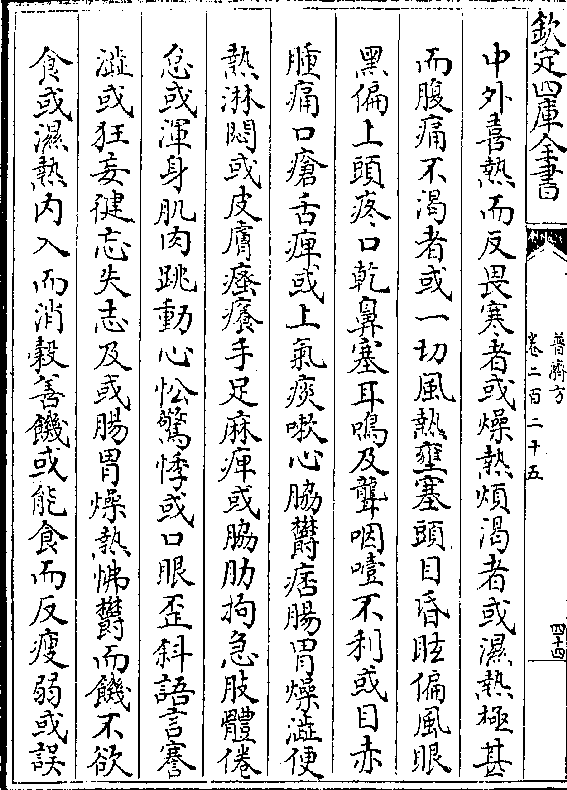 欽定四庫全書
普濟方
卷二百二十五
四十四
中外喜熱而反畏寒者或燥熱煩渴者或濕熱極甚
而腹痛不渴者或一切風熱壅塞頭目昏眩偏風眼
黑偏上頭疼口乾鼻塞耳鳴及聾咽噎不利或目赤
腫痛口瘡舌痺或上氣痰嗽心脇鬱痞腸胃燥澁便
熱淋悶或皮膚瘙癢手足麻痺或脇肋拘急肢體倦
怠或渾身肌肉跳動心忪驚悸或口眼歪斜語言謇
澁或狂妄健忘失志及或腸胃燥熱怫鬱而饑不欲
食或濕熱内入而消穀善饑或能食而反瘦弱或誤